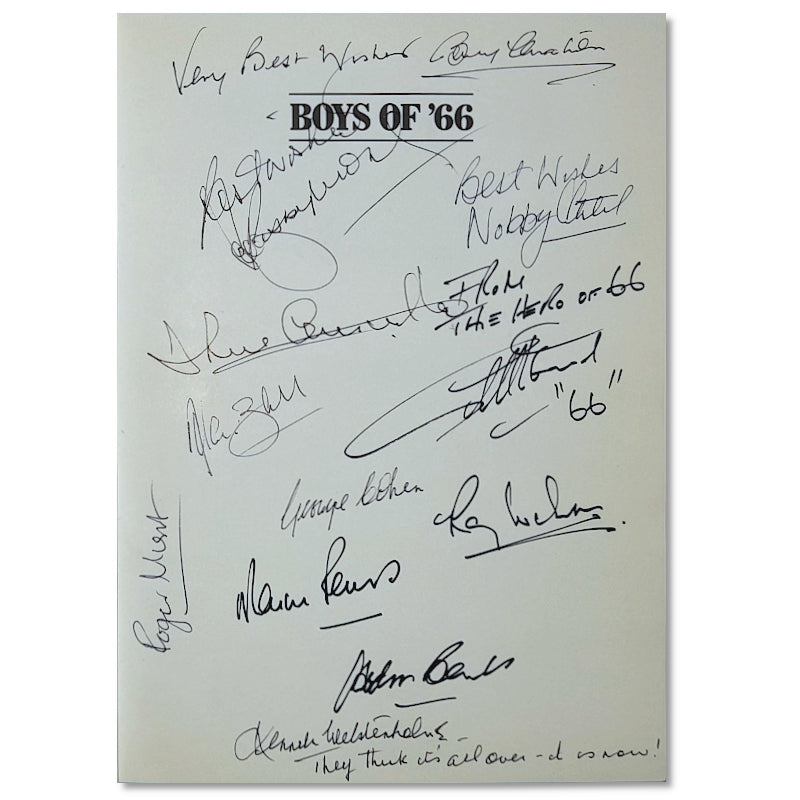 Very Best Wishes
BOYS OF '66
Best Wishes
Best Wishes
Nobby Stiles
FROM
THE HERO OF 66
"66"
Alan Ball
George Cohen
Ray Wilson
Roger Hunt
Martin Peters
Gordon Banks
Kenneth Wolstenholme -
They think it's all over - it is now!